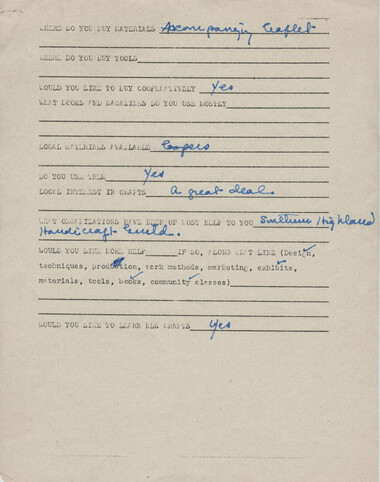 WHERE DO YOU BUY MATERIALS Accompanying leaflet
WHERE DO YOU BUY TOOLS
WOULD YOU LIKE TO BUY COOPERATIVELY Yes
WHAT BOOKS AND MAGAZINES DO YOU USE MOSTLY
LOCAL MATERIALS AVAILABLE Coopers
DO YOU USE THEM Yes
LOCAL INTEREST IN CRAFTS A great deal
WHAT ORGANIZATIONS HAVE BEEN OF MOST HELP TO YOU Southern Highland
Handicraft Guild.
WOULD YOU LIKE MORE HELP IF SO, ALONG WHAT LINE (Design,
techniques, production, work methods, marketing, exhibits,
materials, tools, books, community classes)
WOULD YOU LIKE TO LEARN NEW CRAFTS Yes